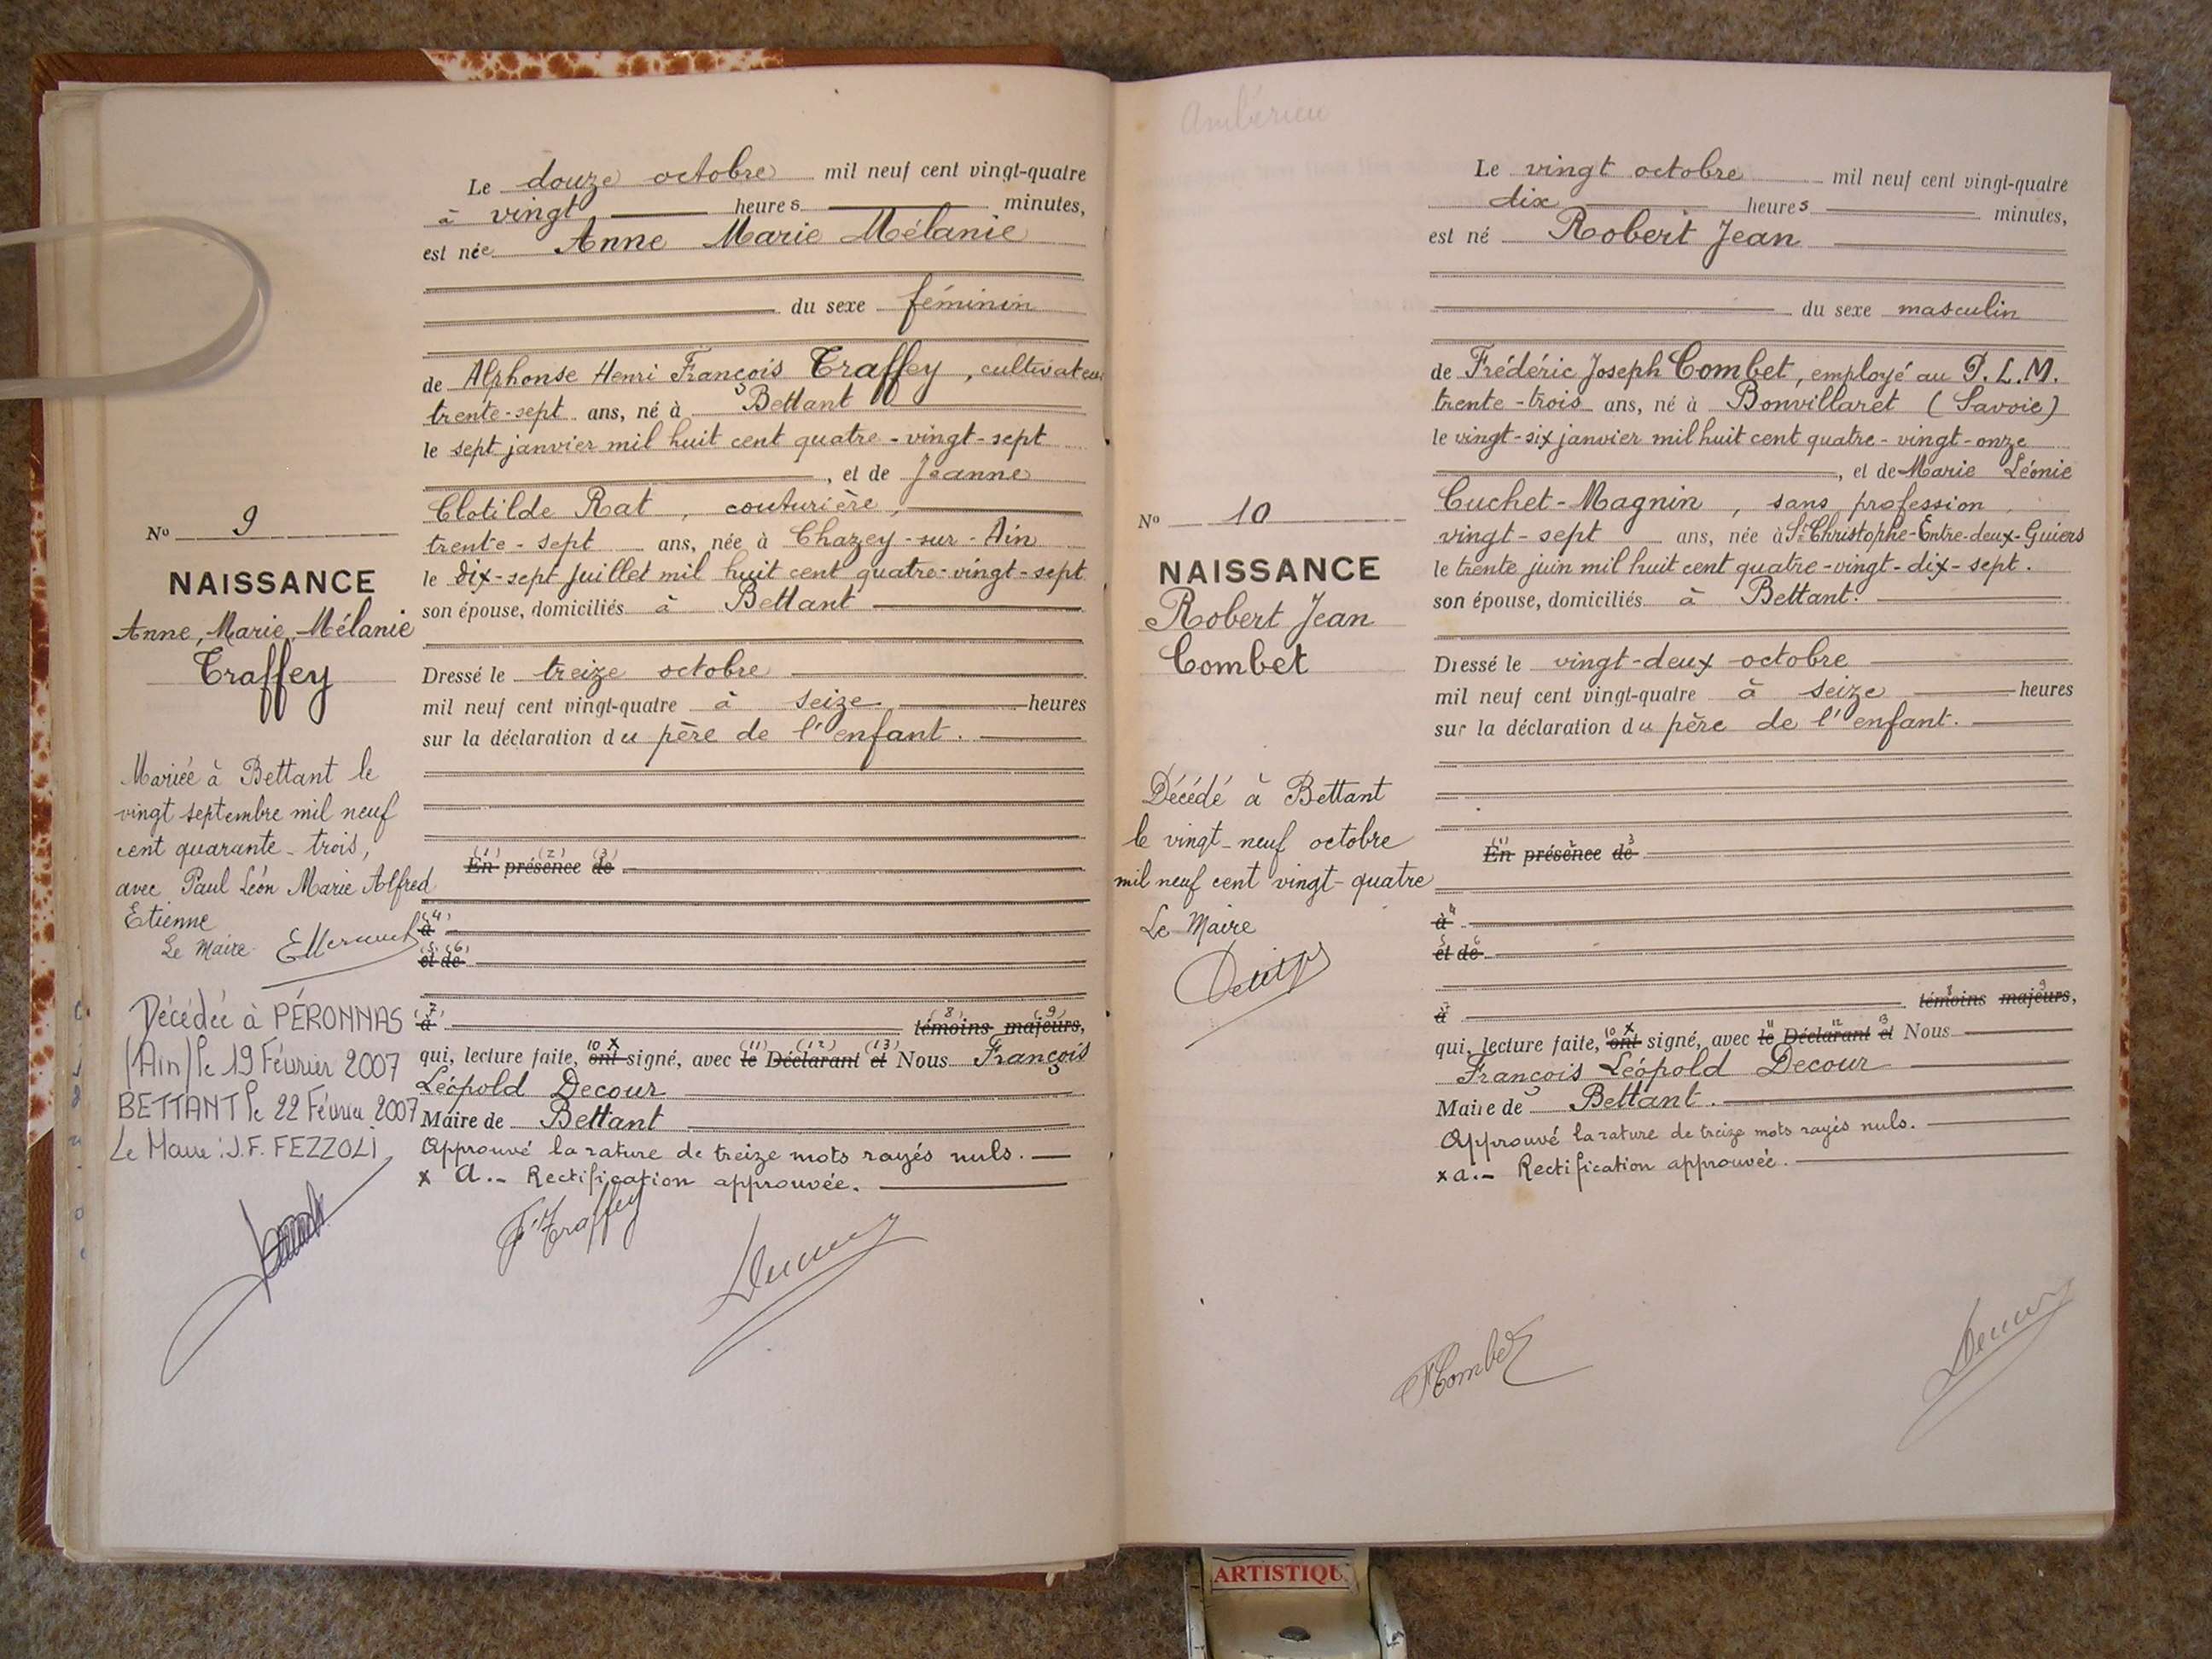 Le douze octobre mil neuf cent vingt-quatre
à vingt heures minutes,
est née Anne Marie Mélanie
du sexe féminin
de Alphonse Henri François Traffey, cultivateur
trente-sept ans, né à Bettant
le sept janvier mil huit cent quatre-vingt-sept
, et de Jeanne
Clotilde Rat, couturière,
trente-sept ans, née à Chazey-sur-Ain
le dix-sept juillet mil huit cent quatre-vingt-sept
son épouse, domiciliés à Bettant
Dressé le treize octobre
mil neuf cent vingt-quatre à seize heures
sur la déclaration du père de l'enfant.
(1) (2) (3)
En présence de
(4)
à
(5) (6)
et de
(7) (8) (9)
à témoins majeurs,
10 x (11) (12) (13)
qui, lecture faite, ont signé, avec le Déclarant et Nous François
Léopold Decour
Maire de Bettant
Approuvé la rature de treize mots rayés nuls.
x a.- Rectification approuvée.
Traffey
No 9
NAISSANCE
Anne, Marie, Mélanie
Traffey
Mariée à Bettant le
vingt septembre mil neuf
cent quarante-trois,
avec Paul Léon Marie Alfred
Etienne
Le Maire
Décédée à PÉRONNAS
(Ain) le 19 Février 2007
BETTANT le 22 Février 2007
Le Maire : J.F. FEZZOLI
Ambérieu
Le vingt octobre mil neuf cent vingt-quatre
dix heures minutes,
est né Robert Jean
du sexe masculin
de Frédéric Joseph Combet, employé au P.L.M.
trente-trois ans, né à Bonvillaret (Savoie)
le vingt-six janvier mil huit cent quatre-vingt-onze
, et de Marie Léonie
Cuchet-Magnin, sans profession,
vingt-sept ans, née à St Christophe-Entre-deux-Guiers
le trente juin mil huit cent quatre-vingt-dix-sept.
son épouse, domiciliés à Bettant.
Dressé le vingt-deux octobre
mil neuf cent vingt-quatre à seize heures
sur la déclaration du père de l'enfant.
(1) 2 3
En présence de
4
à
5 6
et de
7 8 9
à témoins majeurs,
10 x 11 12 13
qui, lecture faite, ont signé, avec le Déclarant et Nous
François Léopold Decour
Maire de Bettant.
Approuvé la rature de treize mots rayés nuls.
x a.- Rectification approuvée.
FCombet
No 10
NAISSANCE
Robert Jean
Combet
Décédé à Bettant
le vingt-neuf octobre
mil neuf cent vingt-quatre
Le Maire
ARTISTIQU